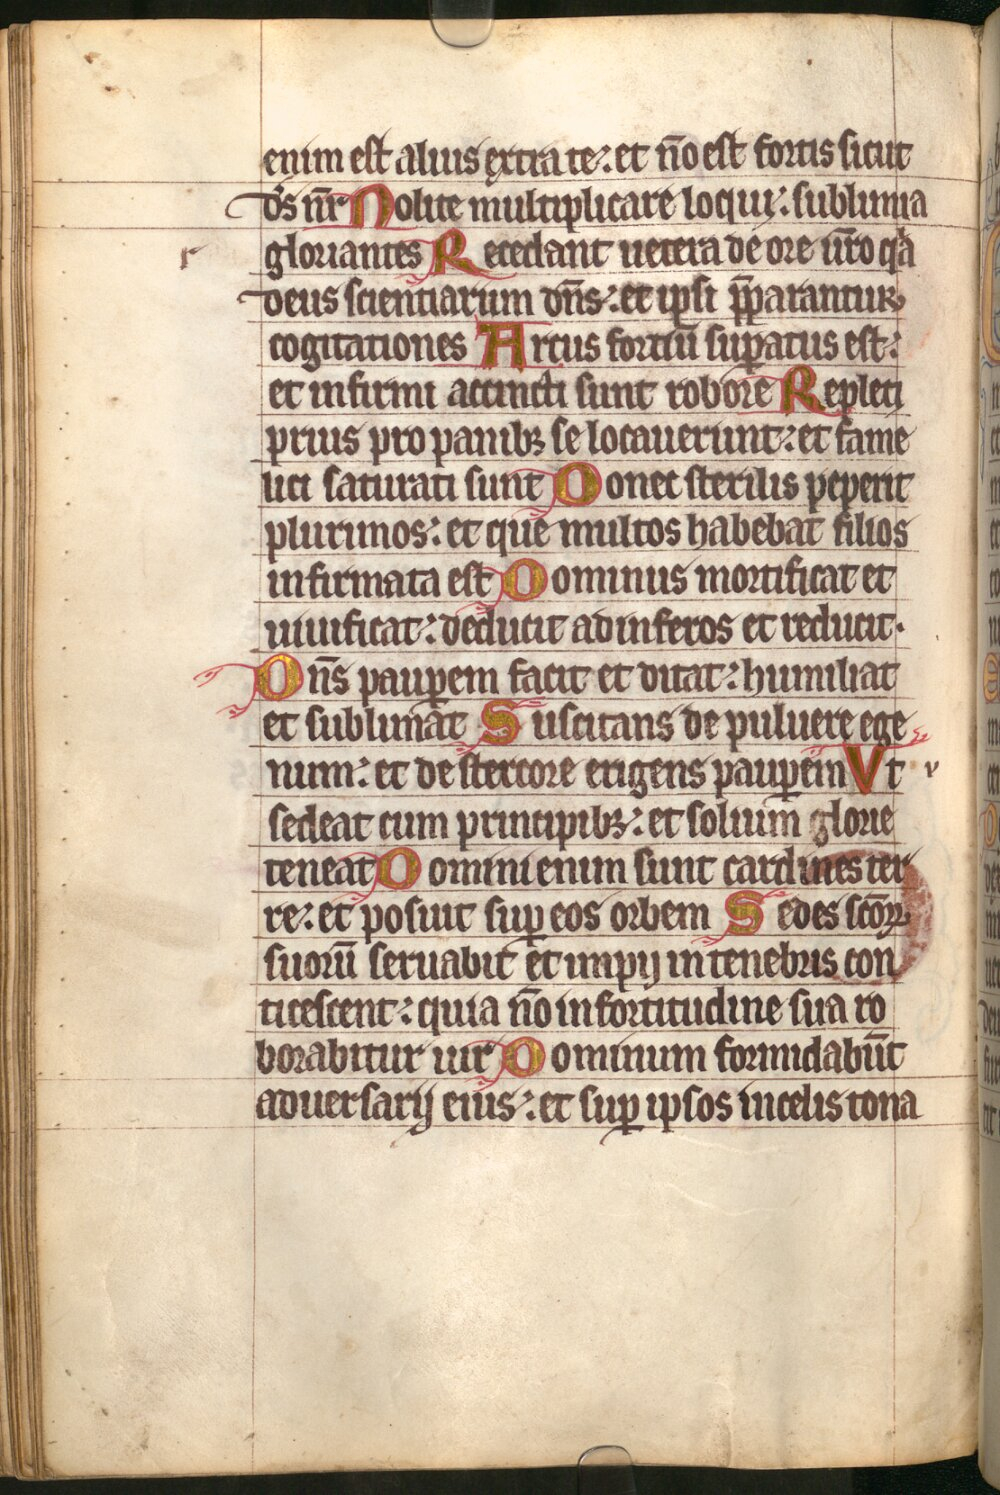 enim est alius extra te: et nō est fortis sicut
ds̄ nr̄ Nolite multiplicare loqui: sublimia
gloriantes Recedant uetera de ore ur̄o qa
deus scientiarum dn̄s: et ipsi p̄parantur
cogitationes Arcus fortiū suꝑatus est:
et infirmi accincti sunt robore Repleti
prius pro panibꝫ se locauerunt: et fame
lici saturati sunt Donec sterilis peperit
plurimos: et que multos habebat filios
infirmata est Dominus mortificat et
uiuificat: deducit ad inferos et reducit.
Dn̄s pauꝑem facit et ditat: humiliat
et sublimat Suscitans de puluere ege
num: et de stercore erigens pauꝑem Vt
sedeat cum principibꝫ: et solium glorie
teneat Domini enim sunt cardines ter
re: et posuit suꝑ eos orbem Sedes scōꝝ
suorū seruabit et impij in tenebris con
ticescent: quia nō in fortitudine sua ro
borabitur uir Dominum formidabūt
aduersarij eius: et suꝑ ipsos in celis tona
r
v